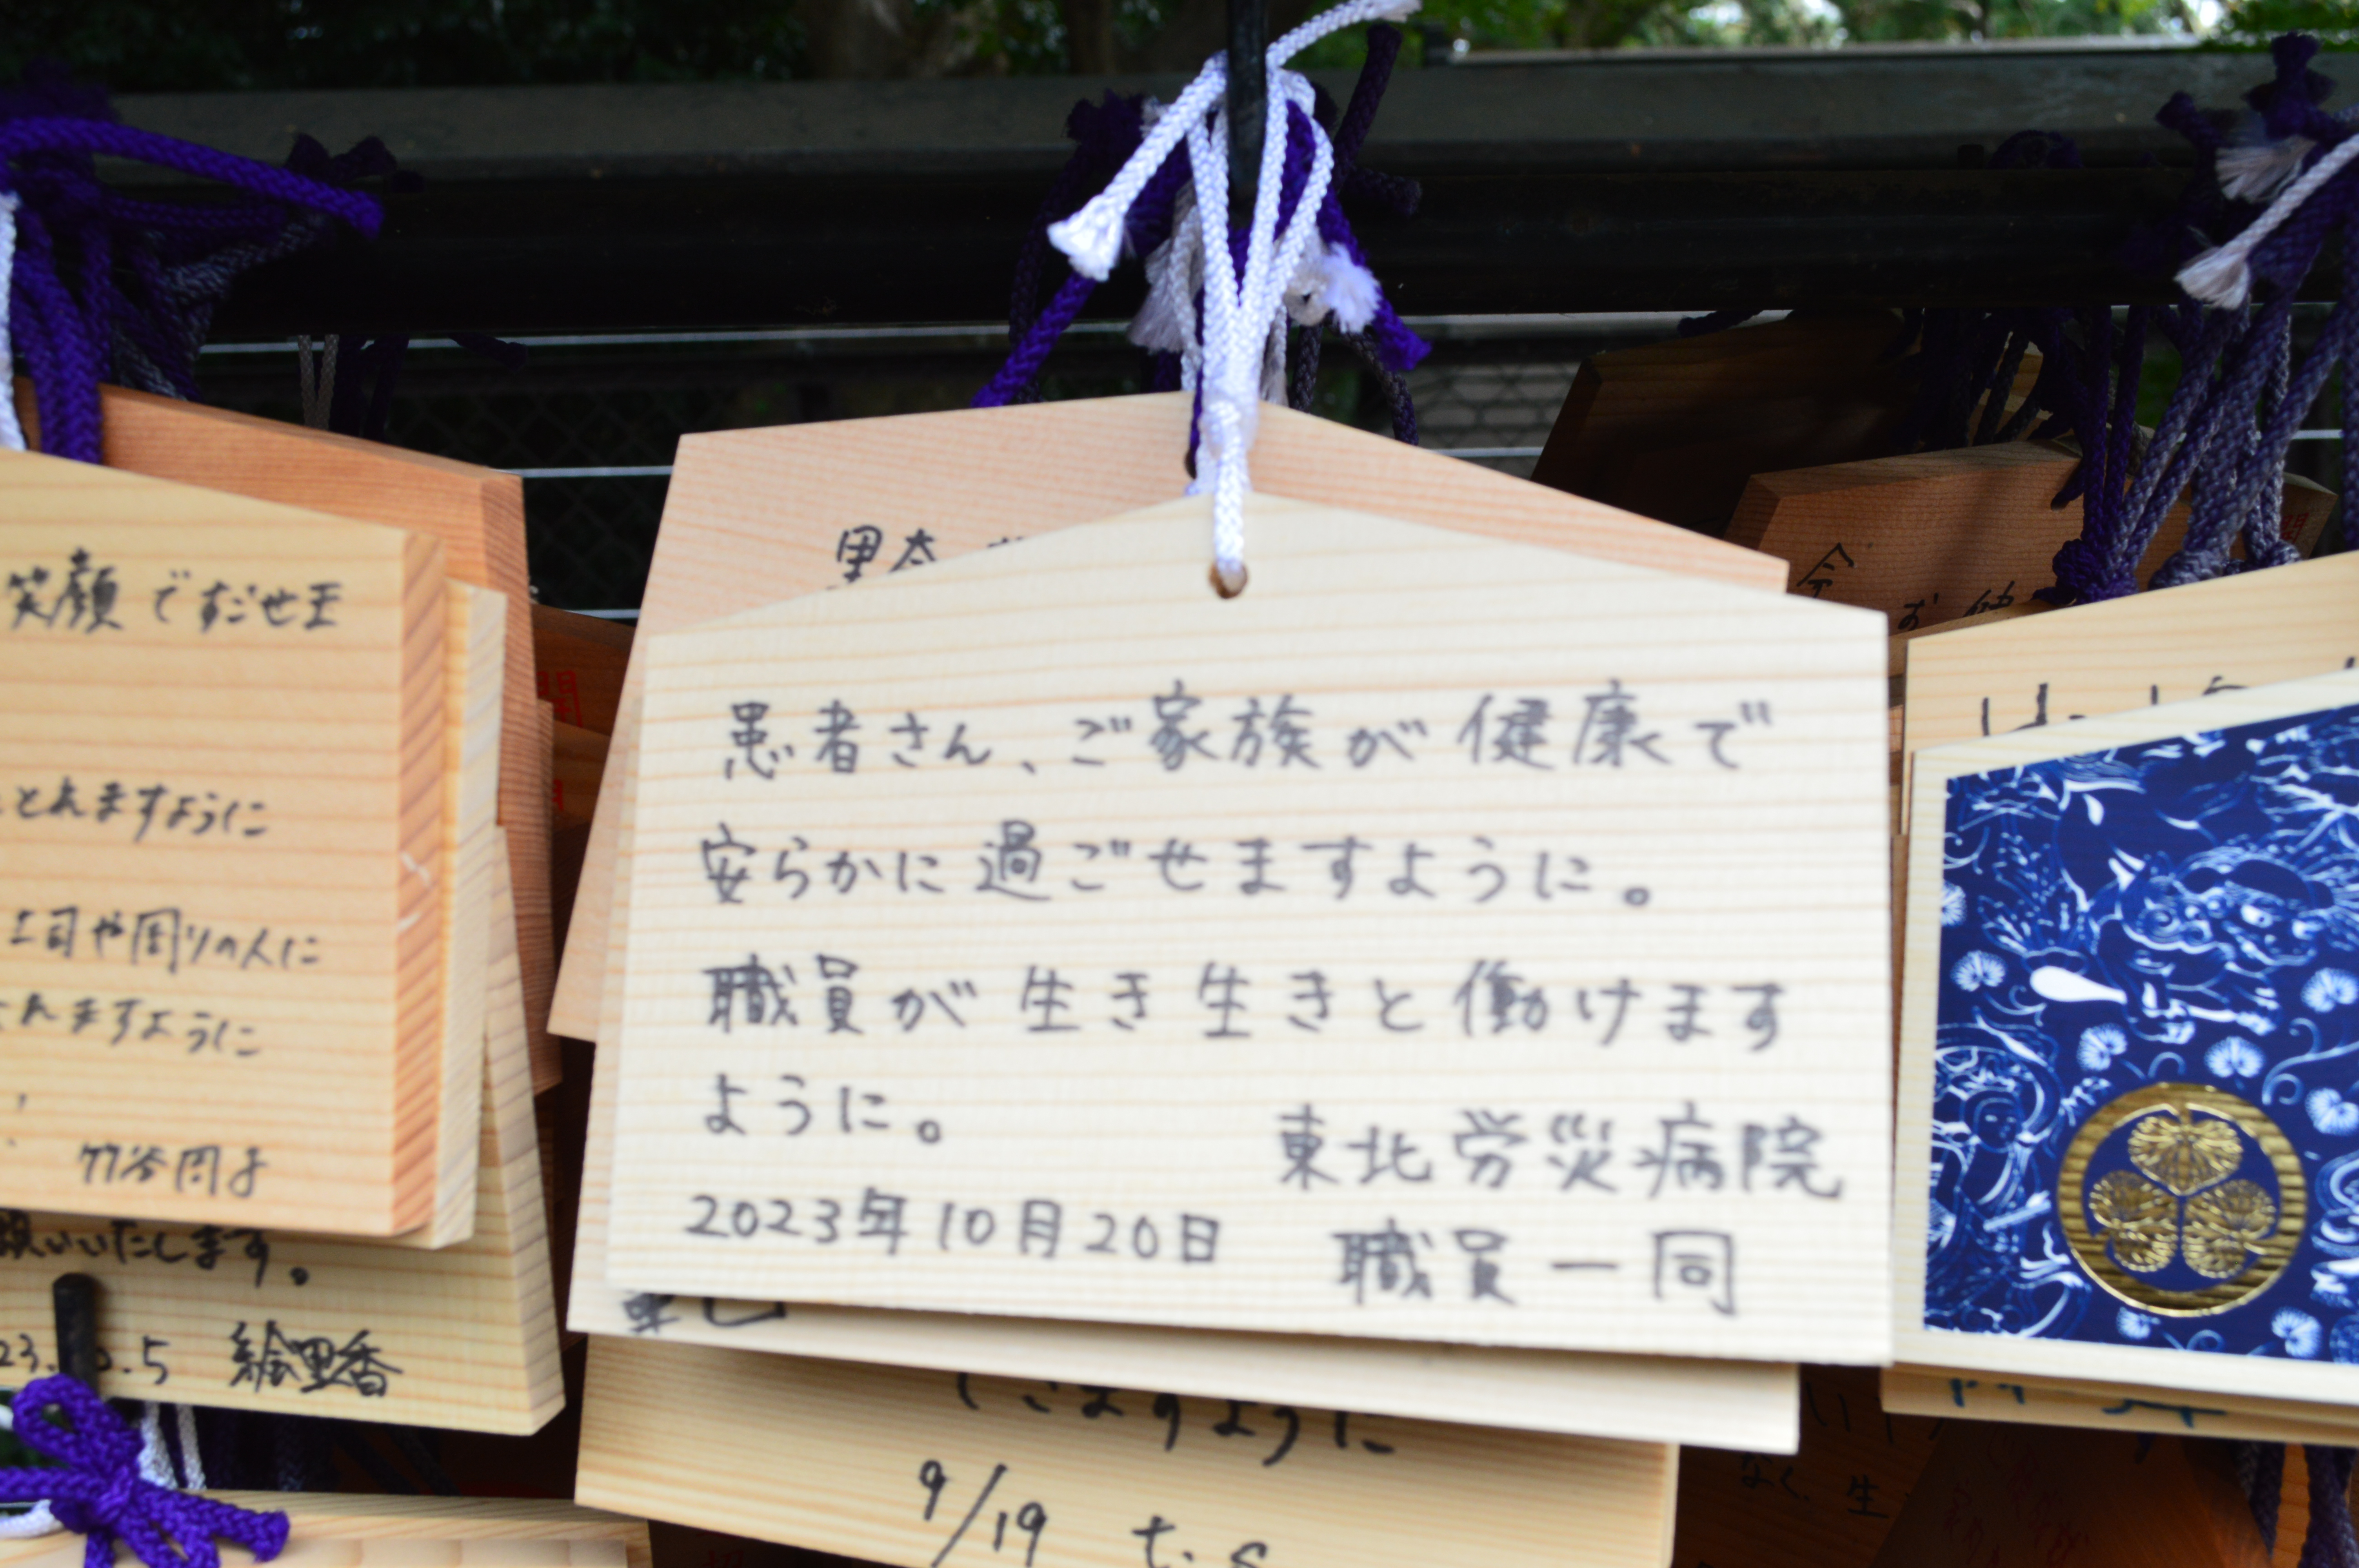 笑顔ですごせ
とれますように
上司や周りの人に
れますように
いいたします。
.5 絵里香
里奈
患者さん、ご家族が健康で
安らかに過ごせますように。
職員が生き生きと働けます
ように。
東北労災病院
2023年10月20日
職員一同
ますように
9/19 t.s
今
なく、生